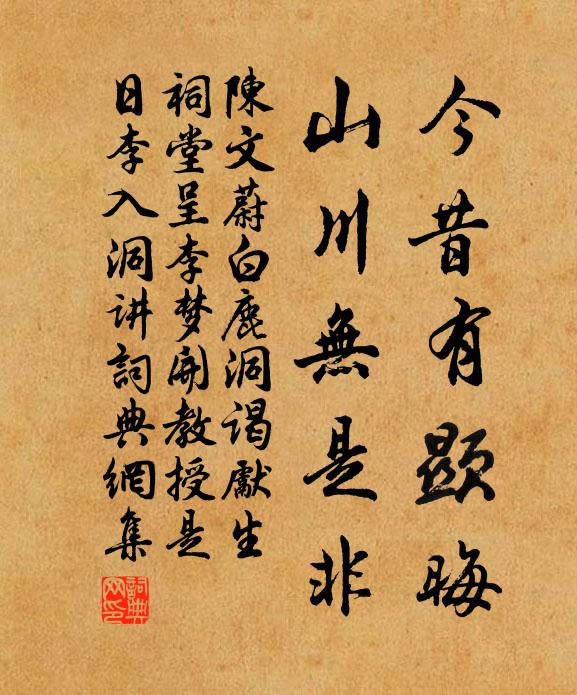 今昔有顯晦
山川無是非
陳文蔚白鹿洞謁獻生
祠堂呈李梦開教授是
日李入洞讲詞典網集
詞典網印